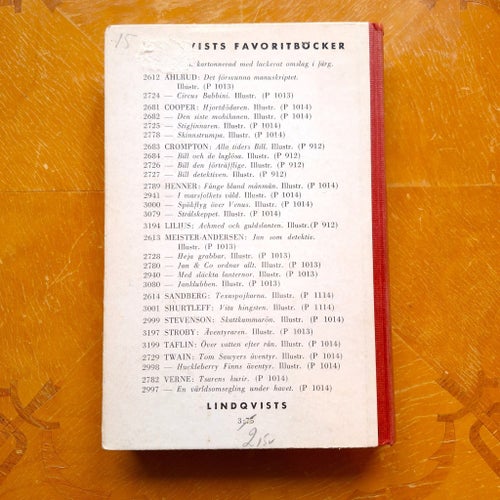 15
VISTS FAVORITBÖCKER
kartonnerad med lackerat omslag i färg.
2612 AHLRUD: Det försvunna manuskriptet.
Illustr. (P 1013)
2724 — Circus Babbini. Illustr. (P 1013)
2681 COOPER: Hjortdödaren. Illustr. (P 1014)
2682 — Den siste mohikanen. Illustr. (P 1014)
2725 — Stigfinnaren. Illustr. (P 1014)
2778 — Skinnstrumpa. Illustr. (P 1014)
2683 CROMPTON: Alla tiders Bill. Illustr. (P 912)
2684 — Bill och de laglösa. Illustr. (P 912)
2726 — Bill den förträfflige. Illustr. (P 912)
2727 — Bill detektiven. Illustr. (P 912)
2789 HENNER: Fånge bland månmän. Illustr. (P 1014)
2941 — I marsfolkets våld. Illustr. (P 1014)
3000 — Spökflyg över Venus. Illustr. (P 1014)
3079 — Strålskeppet. Illustr. (P 1014)
3194 LILIUS: Achmed och guldslanten. Illustr. (P 912)
2613 MEISTER-ANDERSEN: Jan som detektiv.
Illustr. (P 1013)
2728 — Heja grabbar. Illustr. (P 1013)
2780 — Jan & Co ordnar allt. Illustr. (P 1013)
2940 — Med släckta lanternor. Illustr. (P 1013)
3080 — Janklubben. Illustr. (P 1013)
2614 SANDBERG: Texaspojkarna. Illustr. (P 1114)
3001 SHURTLEFF: Vita hingsten. Illustr. (P 1014)
2999 STEVENSON: Skattkammarön. Illustr. (P 1014)
3197 STROBY: Äventyraren. Illustr. (P 1013)
3199 TAFLIN: Över vatten efter rån. Illustr. (P 1014)
2729 TWAIN: Tom Sawyers äventyr. Illustr. (P 1014)
2998 — Huckleberry Finns äventyr. Illustr. (P 1014)
2782 VERNE: Tsarens kurir. (P 1014)
2997 — En världsomsegling under havet. (P 1014)
LINDQVISTS